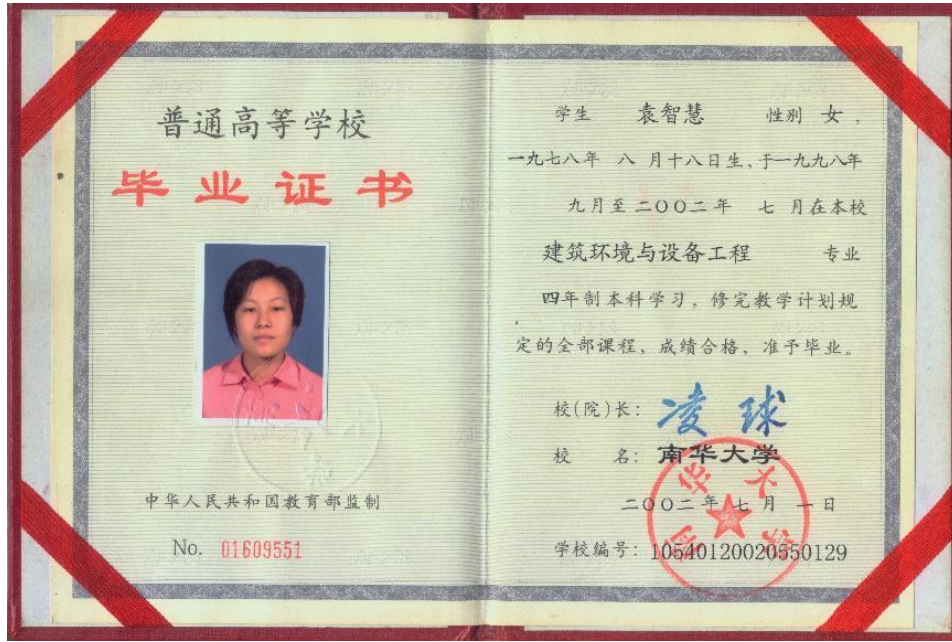 普通高等学校
毕业证书
中华人民共和国教育部监制
No. 01609551
学生 袁智慧 性别 女，
一九七八年 八 月十八日生，于一九九八年
九月至二〇〇二年 七 月在本校
建筑环境与设备工程 专业
四年制本科学习，修完教学计划规
定的全部课程，成绩合格，准予毕业。
校(院)长： 凌球
校 名： 南华大学
二〇〇二年七月一日
学校编号：105401200205550129
南华大学